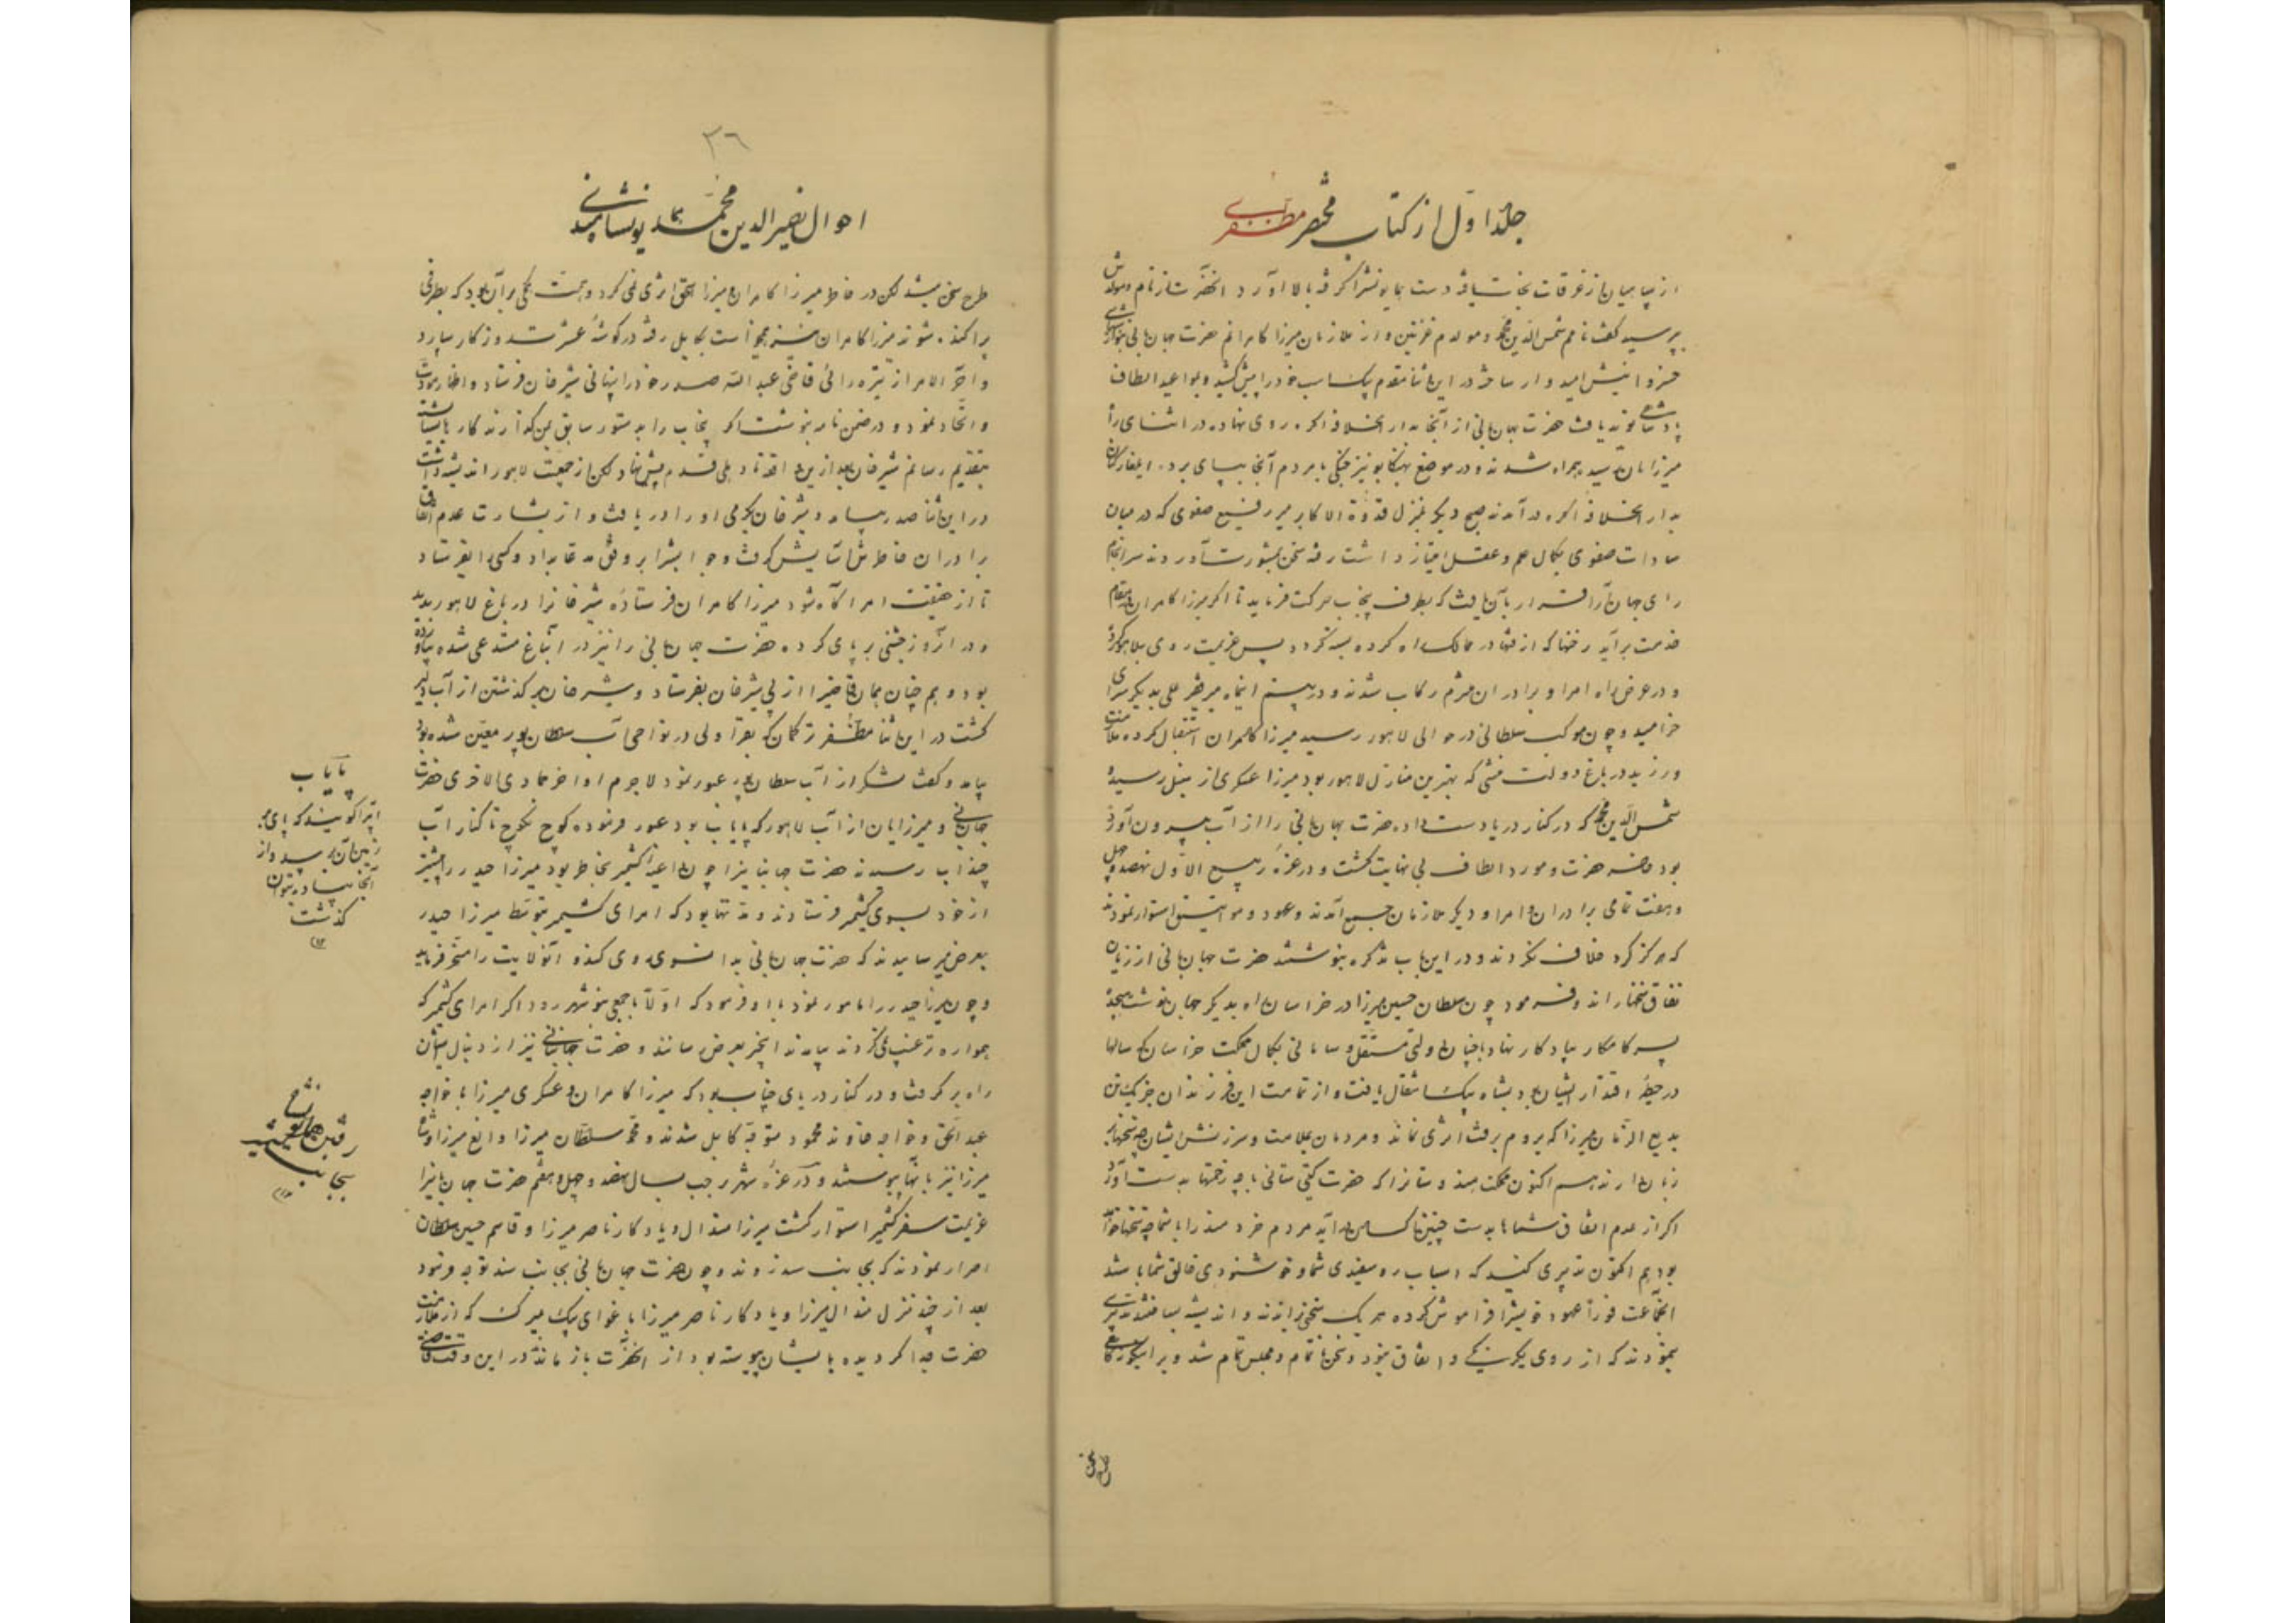 جلد اول از کتاب مختصر مظفری
از سپاهیان از غرقات نجات یافته دست همایونشرا گرفته بالا آورد آنحضرت از نام و مولدش
پرسید گفت نامم شمس الدین محمد و مولدم غزنین و از ملازمان میرزا کامرانم حضرت جهانبانی بنوازش
خسروانیش امیدوار ساخت در این اثنا مقدم بیک اسب خود را پیش کشید و بمواعید الطاف
پادشاهی نوید یافت حضرت جهانبانی از آنجا بدار الخلافه اکره روی نهاده در اثنای راه
میرزایان رسیده همراه شدند و در موضع بهنکاپو نیز جنکی با مردم آنجا بپای برده ایلغارکنان
بدار الخلافه اکره در آمدند صبح دیکر بمنزل قدوة الاکابر میر رفیع صفوی که در میان
سادات صفوی بکمال علم و عقل امتیاز داشت رفته سخن بمشورت آوردند سرانجام
رای جهان آرا قرار بآن یافت که بطرف پنجاب حرکت فرماید تا اکر میرزا کامران بمقام
خدمت برآید رخنها که از فتنها در ممالک راه کرده بسته کردد پس عزیمت روی بلاهور کرد
و در عرض راه امرا و برادران ملتزم رکاب شدند و در بیستم اینماه میر فقر علی بدیکر سرای
خرامید و چون موکب سلطانی در حوالی لاهور رسید میرزا کامران استقبال کرده ملازمت
ورزید در باغ دولت منشی که بهترین منازل لاهور بود میرزا عسکری از سنبل رسیده
شمس الدین محمد که در کنار دریا دست داده حضرت جهانبانی را از آب بیرون آورده
بود حاضر حضرت و مورد الطاف بی نهایت کشت و در غره ربیع الاول نهصد و چهل
و هفت تمامی برادران و امرا و دیکر ملازمان جمع آمدند و عهود و مواثیق استوار نمودند
که هرکز کرد خلاف نکردند و در این باب تذکره بنوشتند حضرت جهانبانی از زیان
نفاق سخنها راند و فرمود چون سلطان حسین میرزا در خراسان راه بدیکر جهان نوشت هیجده
پسر کامکار بیادکار نهاد با چنان دولتی مستقل و سامانی بکمال مملکت خراسان که سالها
در حیطه اقتدار ایشان بود بشاه بیک انتقال یافت و از تمامت این فرزندان جز یک تن
بدیع الزمان میرزا که بروم برفت اثری نماند و مردمان بملامت و سرزنش ایشان چه سخنها بر
زبان دارند هم اکنون مملکت هندوستانرا که حضرت کیتی ستانی با چه زحمتها بدست آورد
اکر از عدم اتفاق شماها بدست چنین ناکسان در آید مردم خردمند را با شما چه سخنها خواهد
بود هم اکنون تدبیری کنید که اسباب روسفیدی شما و خوشنودی خالق شما باشد
اینجماعت فوراً عهود خویشرا فراموش کرده هر یک سخنی راندند و اندیشه
نمودند که از روی یکرنکی و اتفاق نبود و سخن ناتمام و مجلس تمام شد و بر اینکونه کاهی
طرح سخن
۳٦
احوال نصیر الدین محمد همایون پادشاه
طرح سخن میشد لکن در خاطر میرزا کامران میرزا هیچ اثری نمی کرد و همت همکی بر آن بود که بطرفی
پراکنده شوند میرزا کامران نیز همیخواست بکابل رفته در کوشه عشرت روزکار سپارد
و آخر الامر از تیره رائی قاضی عبد الله صدر خود را پنهانی بنزد شیرخان فرستاد و اظهار مودت
و اتحاد نمود و در ضمن نامه بنوشت اکر پنجاب را بدستور سابق بمن کذارند کار
بتقدیم رسانم شیرخان بعد از این واقعه از دهلی قدم پیش نهاد لکن از جمعیت لاهور اندیشه داشت
در این اثنا صدر رسید و شیرخان بکرمی او را دریافت و از بشارت عدم اتفاق
برادران خاطرش آسایش کرفت و جوابشرا بر وفق مدعا بداد و کسی را بفرستاد
تا از حقیقت امر آکاه شود میرزا کامران فرستاده شیرخانرا در باغ لاهور بدید
و در آنروز جشنی برپای کرده حضرت جهانبانی را نیز در آنباغ مستدعی شده بیاورده
بود و هم چنان همان قاضیرا از پی شیرخان بفرستاد و شیرخان بر کذشتن از آب دلیر
کشت در این اثنا مظفر ترکمان که بقراولی در نواحی آب سلطان پور معین شده بود
بیامد و کفت لشکر از آب سلطان پور عبور نمود لاجرم اواخر جمادی الاخری حضرت
جهانبانی و میرزایان از آب لاهور که پایاب بود عبور فرموده کوچ بکوچ تا کنار آب
چناب رسیدند حضرت جهانبانیرا چون داعیه کشمیر بخاطر بود میرزا حیدر را پیشتر
از خود بسوی کشمیر فرستادند و مدتها بود که امرای کشمیر بتوسط میرزا حیدر
بعرض میرسانیدند که حضرت جهانبانی بدانسوی روی کند و آنولایت را مسخر فرماید
و چون میرزا حیدر را مامور نمود با او فرمود که اولاً با جمعی بنوشهر رود اکر امرای کشمیر که
همواره ترغیب میکردند بیامدند اینخبر بعرض رسانند و حضرت جهانبانی نیز از دنبال ایشان
راه بر کرفت و در کنار دریای چناب بود که میرزا کامران و عسکری میرزا با خواجه
عبد الحق و خواجه خاوند محمود متوجه کابل شدند و محمد سلطان میرزا و الغ میرزا و شاه
میرزا نیز با آنها پیوستند و در غره شهر رجب سال نهصد و چهل و هفتم حضرت جهانبانیرا
عزیمت سفر کشمیر استوار کشت میرزا هندال و یادکار ناصر میرزا و قاسم حسین سلطان
اصرار نمودند که بجانب سند روند و چون حضرت جهانبانی بجانب سند توجه فرمود
بعد از چند منزل هندال میرزا و یادکار ناصر میرزا باغوای بیک میرک که از ملازمت
حضرت جدا کردیده بایشان پیوسته بود از آنحضرت باز ماند در این وقت قاضی
پایاب
آبرا کویند که پای بر
زمین آن برسد و از
آنجا پیاده بتوان
کذشت
۱۲
شرح
رفتن همایون
بجانب سند
۱۲